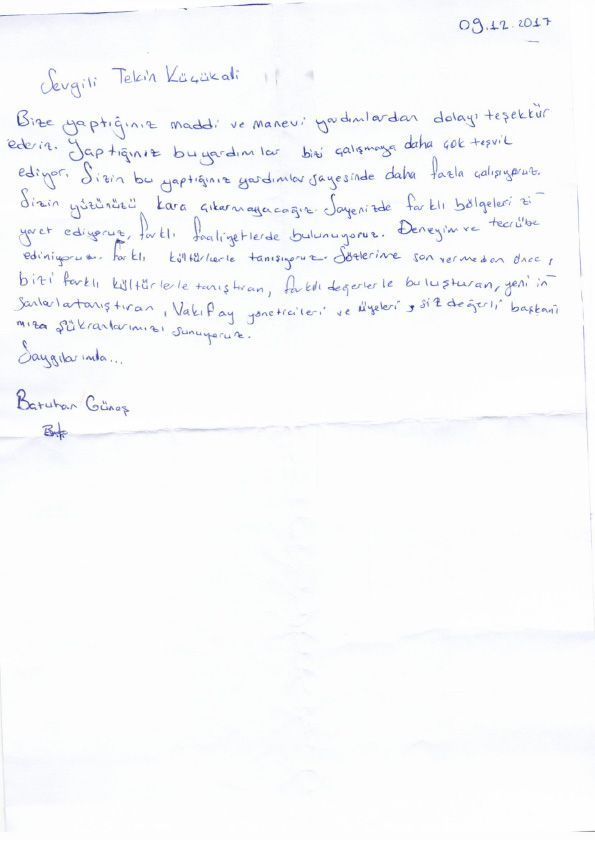 09.12.2017
Sevgili Tekin Küçükali
Bize yaptığınız maddi ve manevi yardımlardan dolayı teşekkür
ederiz. Yaptığınız bu yardımlar bizi çalışmaya daha çok teşvik
ediyor. Sizin bu yaptığınız yardımlar sayesinde daha fazla çalışıyoruz.
Sizin yüzünüzü kara çıkarmayacağız. Sayenizde farklı bölgeleri zi-
yaret ediyoruz, farklı faaliyetlerde bulunuyoruz. Deneyim ve tecrübe
ediniyoruz. Farklı kültürlerle tanışıyoruz. Sözlerime son vermeden önce,
bizi farklı kültürlerle tanıştıran, farklı değerlerle buluşturan, yeni in-
sanlarla tanıştıran, Vakıfay yöneticileri ve üyeleri, siz değerli başkanı-
mıza şükranlarımızı sunuyoruz.
Saygılarımla...
Batuhan Güneş